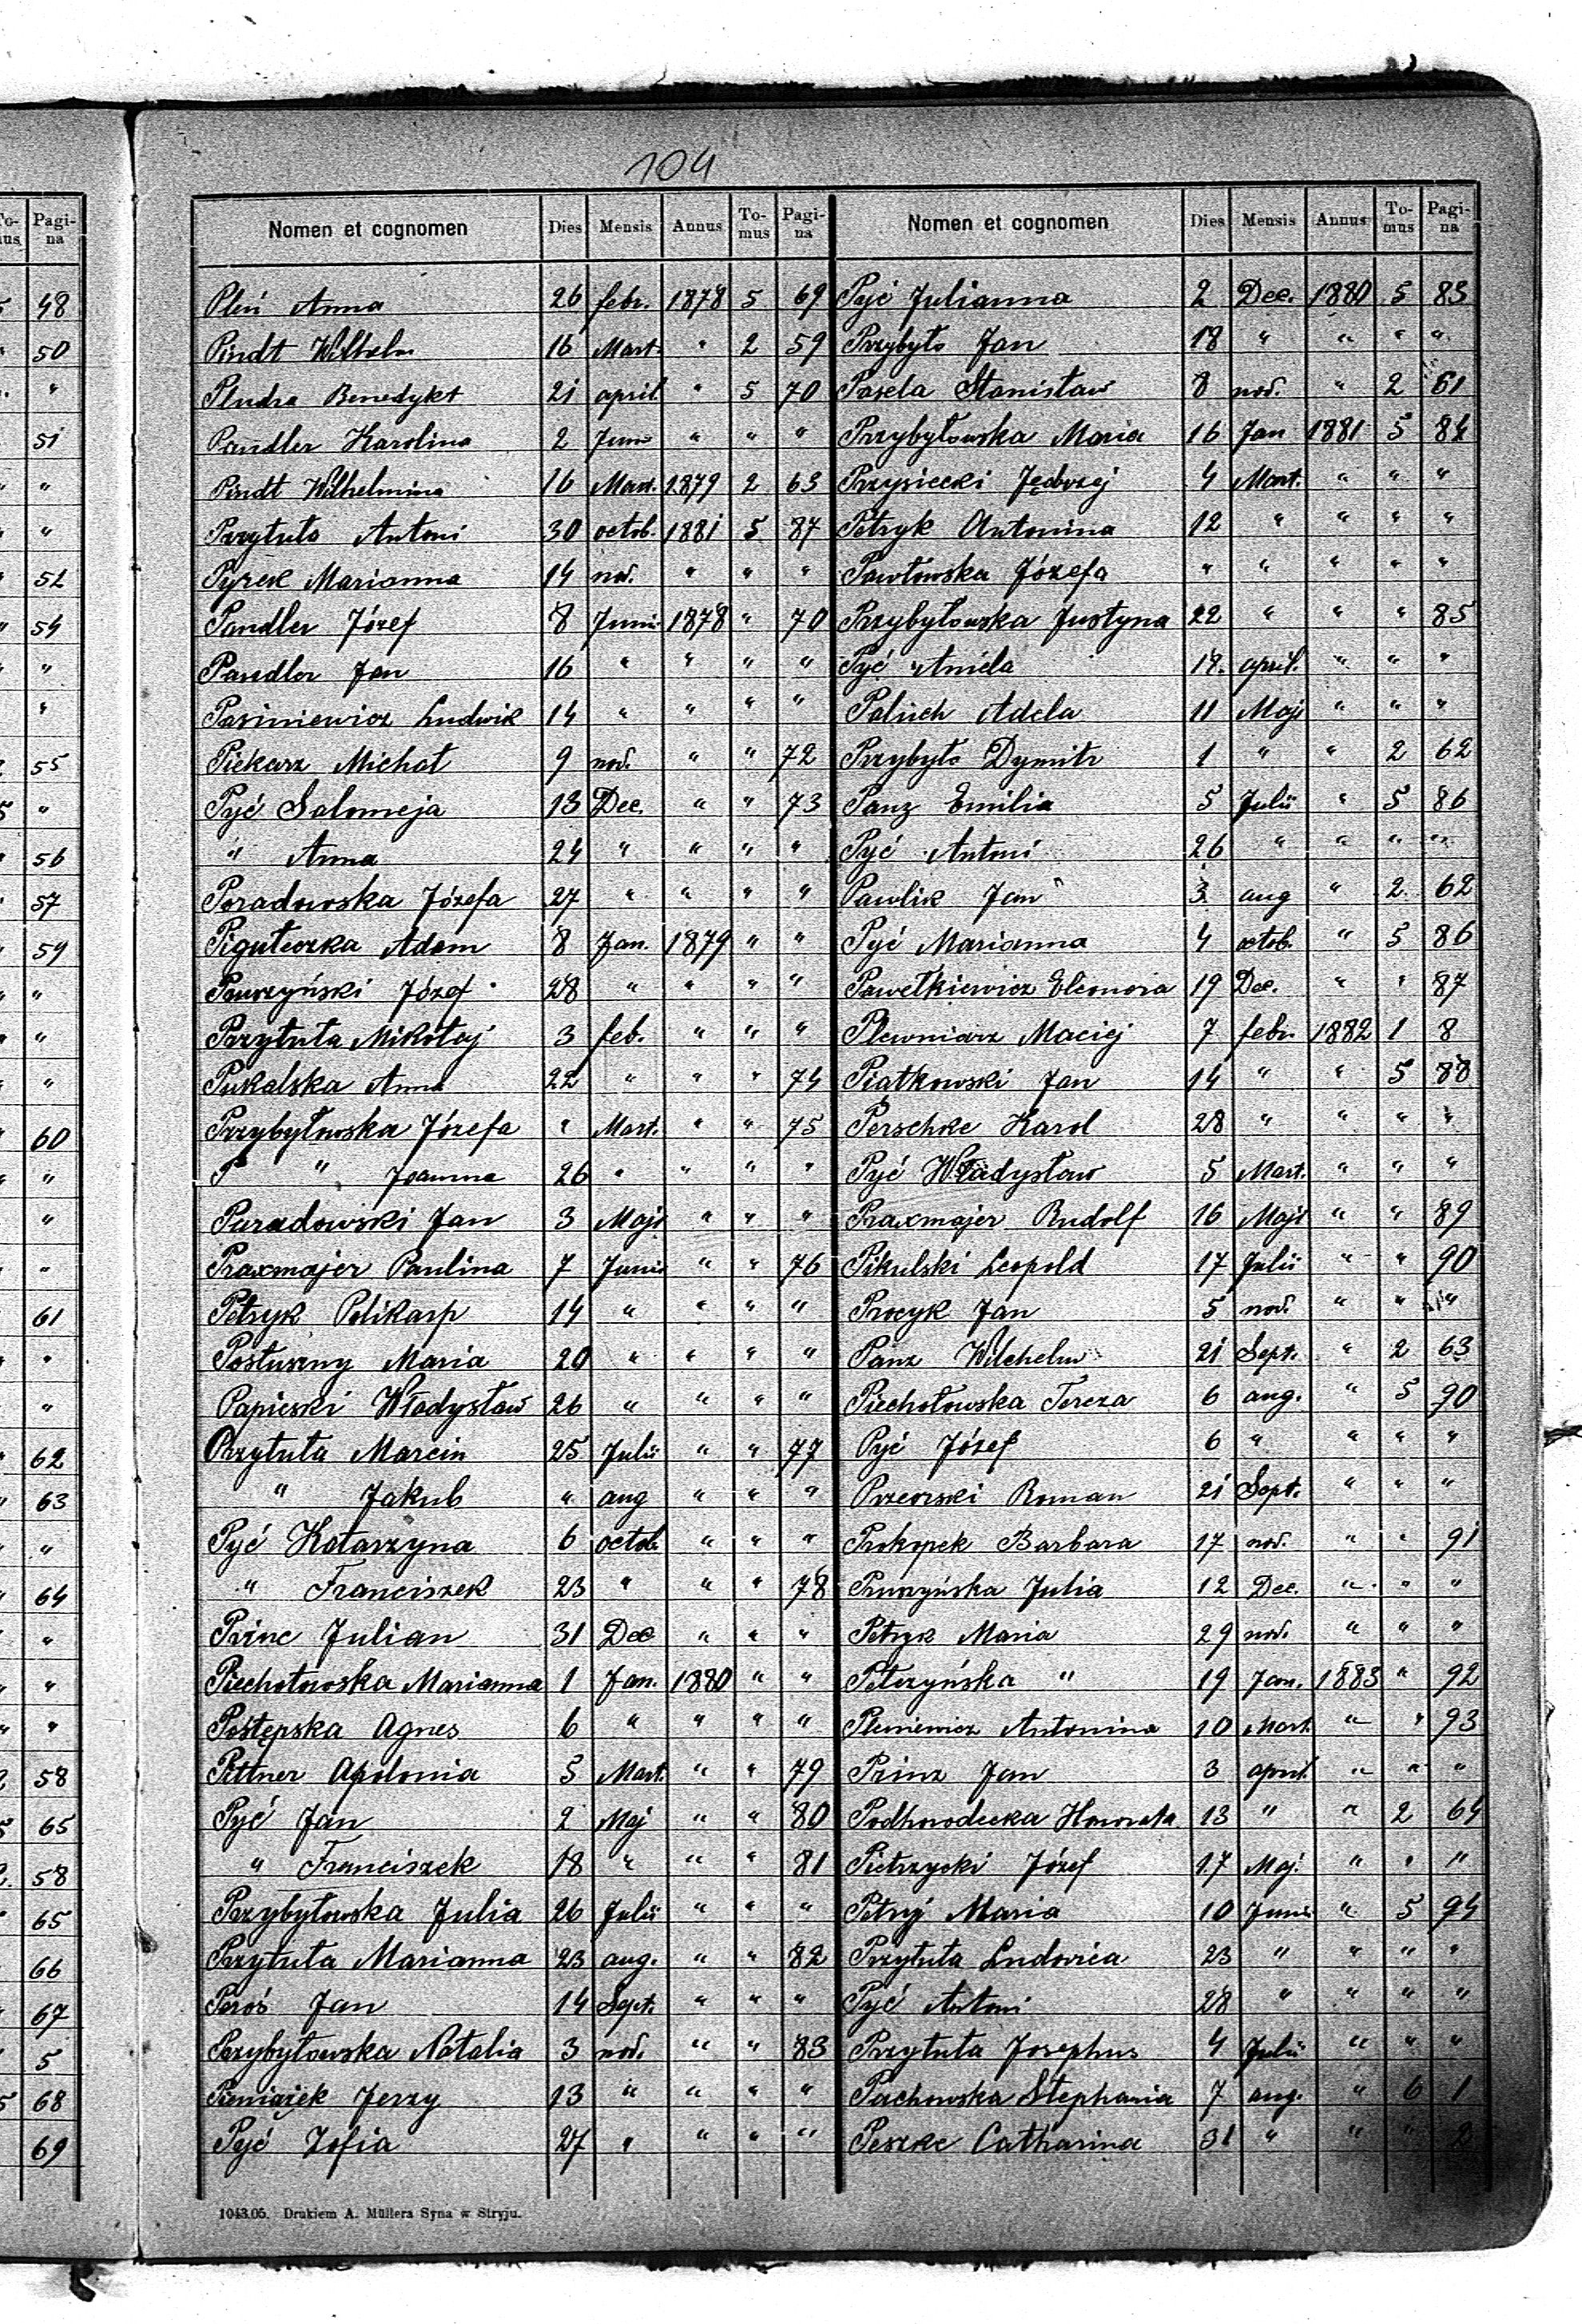 104
To-
mus Pagi-
na
48
" 50
" "
51
" "
" "
" 52
" 54
" "
"
55
5 "
" 56
" 57
" 59
" "
" "
" "
" 60
" "
"
" "
61
" "
"
" 62
" 63
" "
" 64
"
" "
" "
2 58
5 65
2 58
" 65
66
" 67
" 5
5 68
69
Nomen et cognomen Dies Mensis Annus To-mus Pagi-na
Pleń Anna 26 febr. 1878 5 69
Pindt Wilhelm 16 Mart. " 2 59
Pludra Benedykt 21 april. " 5 70
Pandler Karolina 2 Juni " " "
Pindt Wilhelmina 16 Mart. 1879 2 63
Przytuła Antoni 30 octob. 1881 5 87
Pyrek Marianna 14 nov. " " "
Pandler Józef 8 Junii 1878 " 70
Pandler Jan 16 " " " "
Pasiniewicz Ludwik 14 " " " "
Piekarz Michał 9 nov. " " 72
Pyć Salomeja 13 Dec. " " 73
" Anna 24 " " " "
Poradowska Józefa 27 " " " "
Piguteczka Adam 8 Jan. 1879 " "
Pruszyński Józef 28 " " " "
Przytuła Mikołaj 3 feb. " " "
Pukalska Anna 22 " " " 74
Przybyłowska Józefa " Mart. " " 75
P " Joanna 26 " " " "
Paradowski Jan 3 Maji " " "
Praxmajer Paulina 7 Junii " " 76
Petryk Polikarp 14 " " " "
Postuszny Maria 20 " " " "
Papieski Władysław 26 " " " "
Przytuła Marcin 25 Julii " " 77
" Jakub " aug " " "
Pyć Katarzyna 6 octob. " " "
" Franciszek 23 " " " 78
Princ Julian 31 Dec " " "
Piechotowska Marianna 1 Jan. 1880 " "
Postępska Agnes 6 " " " "
Pittner Apolonia 5 Mart. " " 79
Pyć Jan 2 Maj " " 80
" Franciszek 18 " " " 81
Przybyłowska Julia 26 Julii " " "
Przytuła Marianna 23 aug. " " 82
Peroś Jan 14 Sept. " " "
Przybyłowska Natalia 3 nov. " " 83
Pieniażek Jerzy 13 " " " "
Pyć Zofia 27 " " " "
Nomen et cognomen Dies Mensis Annus To-mus Pagi-na
Pyć Julianna 2 Dec. 1880 5 83
Przybyło Jan 18 " " " "
Pasela Stanisław 8 nov. " 2 61
Przybyłowska Maria 16 Jan 1881 5 84
Przysiecki Jędrzej 4 Mart. " " "
Petryk Antonina 12 " " " "
Pawłowska Józefa " " " " "
Przybyłowska Justyna 22 " " " 85
Pyć Aniela 18. april. " " "
Paluch Adela 11 Maji " " "
Przybyło Dymitr 1 " " 2 62
Panz Emilia 5 Julii " 5 86
Pyć Antoni 26 " " " "
Pawlik Jan 3 aug " 2 62
Pyć Marianna 4 octob. " 5 86
Pawełkiewicz Eleonora 19 Dec. " " 87
Plewniarz Maciej 7 febr. 1882 1 8
Piatkowski Jan 14 " " 5 88
Perschke Karol 28 " " " "
Pyć Władysław 5 Mart. " " "
Praxmajer Rudolf 16 Maji " " 89
Pikulski Leopold 17 Julii " " 90
Procyk Jan 5 nov. " " "
Panz Wilchelm 21 Sept. " 2 63
Piechotowska Tereza 6 aug. " 5 90
Pyć Józef 6 " " " "
Przeorski Roman 21 Sept. " " "
Prokopek Barbara 17 nov. " " 91
Pruszyńska Julia 12 Dec. " " "
Petryk Maria 29 nov. " " "
Petczyńska " 19 Jan. 1883 " 92
Pleniewicz Antonina 10 Mart. " " 93
Prinz Jan 3 april. " " "
Podhorodecka Honorata 13 " " 2 64
Pietrzycki Józef 17 Maj. " " "
Petryj Maria 10 Junii " 5 94
Przytuła Ludovica 23 " " " "
Pyć Antoni 28 " " " "
Przytuła Josephus 4 Julii " " "
Pachowska Stephania 7 aug. " 6 1
Peszke Catharina 31 " " " 2
1043.05. Drukiem A. Müllera Syna w Stryju.